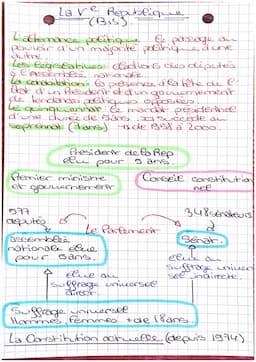 La Ve République
(Bis)
L'alternance politique : le passage au
pouvoir d'un majorité politique à une
autre.
Les législatives : élections des députés
à l'Assemblée nationale.
La cohabitation : la présence à la tête de l'
Etat d'un Président et d'un gouvernement
de tendances politiques opposées.
Le quinquennat : le mandat présidentiel
d'une durée de 5ans. Il succède au
septennat (7ans) de 1958 à 2000.
Président de la Rep
elu pour 5 ans.
Premier ministre
et gouvernement
Conseil constitution
nel
577
députés
Le Parlement
348 sénateurs
Assemblée
nationale élue
pour 5ans.
Sénat.
élue au
suffrage universel
direct.
élue au
suffrage univer
sel indirecte.
Suffrage universel
Hommes, Femmes + de 18ans.
La Constitution actuelle (depuis 1974)